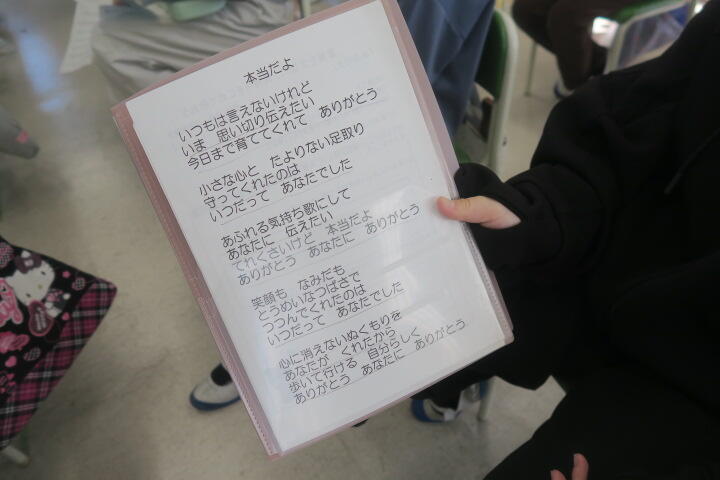 本当だよ
いつもは言えないけれど
いま　思い切り伝えたい
今日まで育ててくれて　ありがとう
小さな心と　たよりない足取り
守ってくれたのは
いつだって　あなたでした
あふれる気持ち歌にして
あなたに　伝えたい
てれくさいけど　本当だよ
ありがとう　あなたに　ありがとう
笑顔も　なみだも
とうめいなつばさで
つつんでくれたのは
いつだって　あなたでした
心に消えないぬくもりを
あなたが　くれたから
歩いて行ける　自分らしく
ありがとう　あなたに　ありがとう